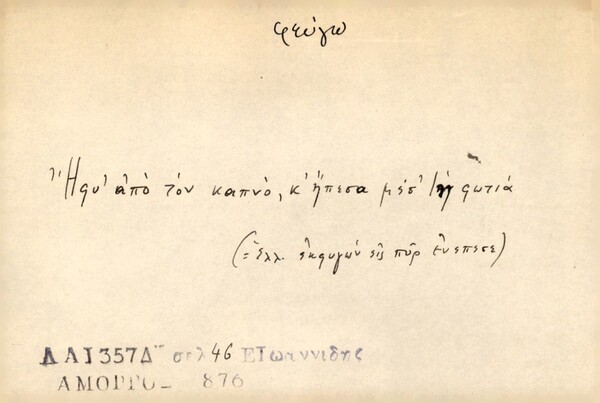 φεύγω
Ἤφυ' ἀπὸ τὸν καπνὸ, κ' ἤπεσα μέσ' 'ς τὴ φωτιά
(= Ἑλλ. ἐκφυγὼν εἰς πῦρ ἐνέπεσε)
ΛΑ 1357Δ" σελ 46 ΕΙωαννιδης
ΑΜΟΡΓΟ_ 876